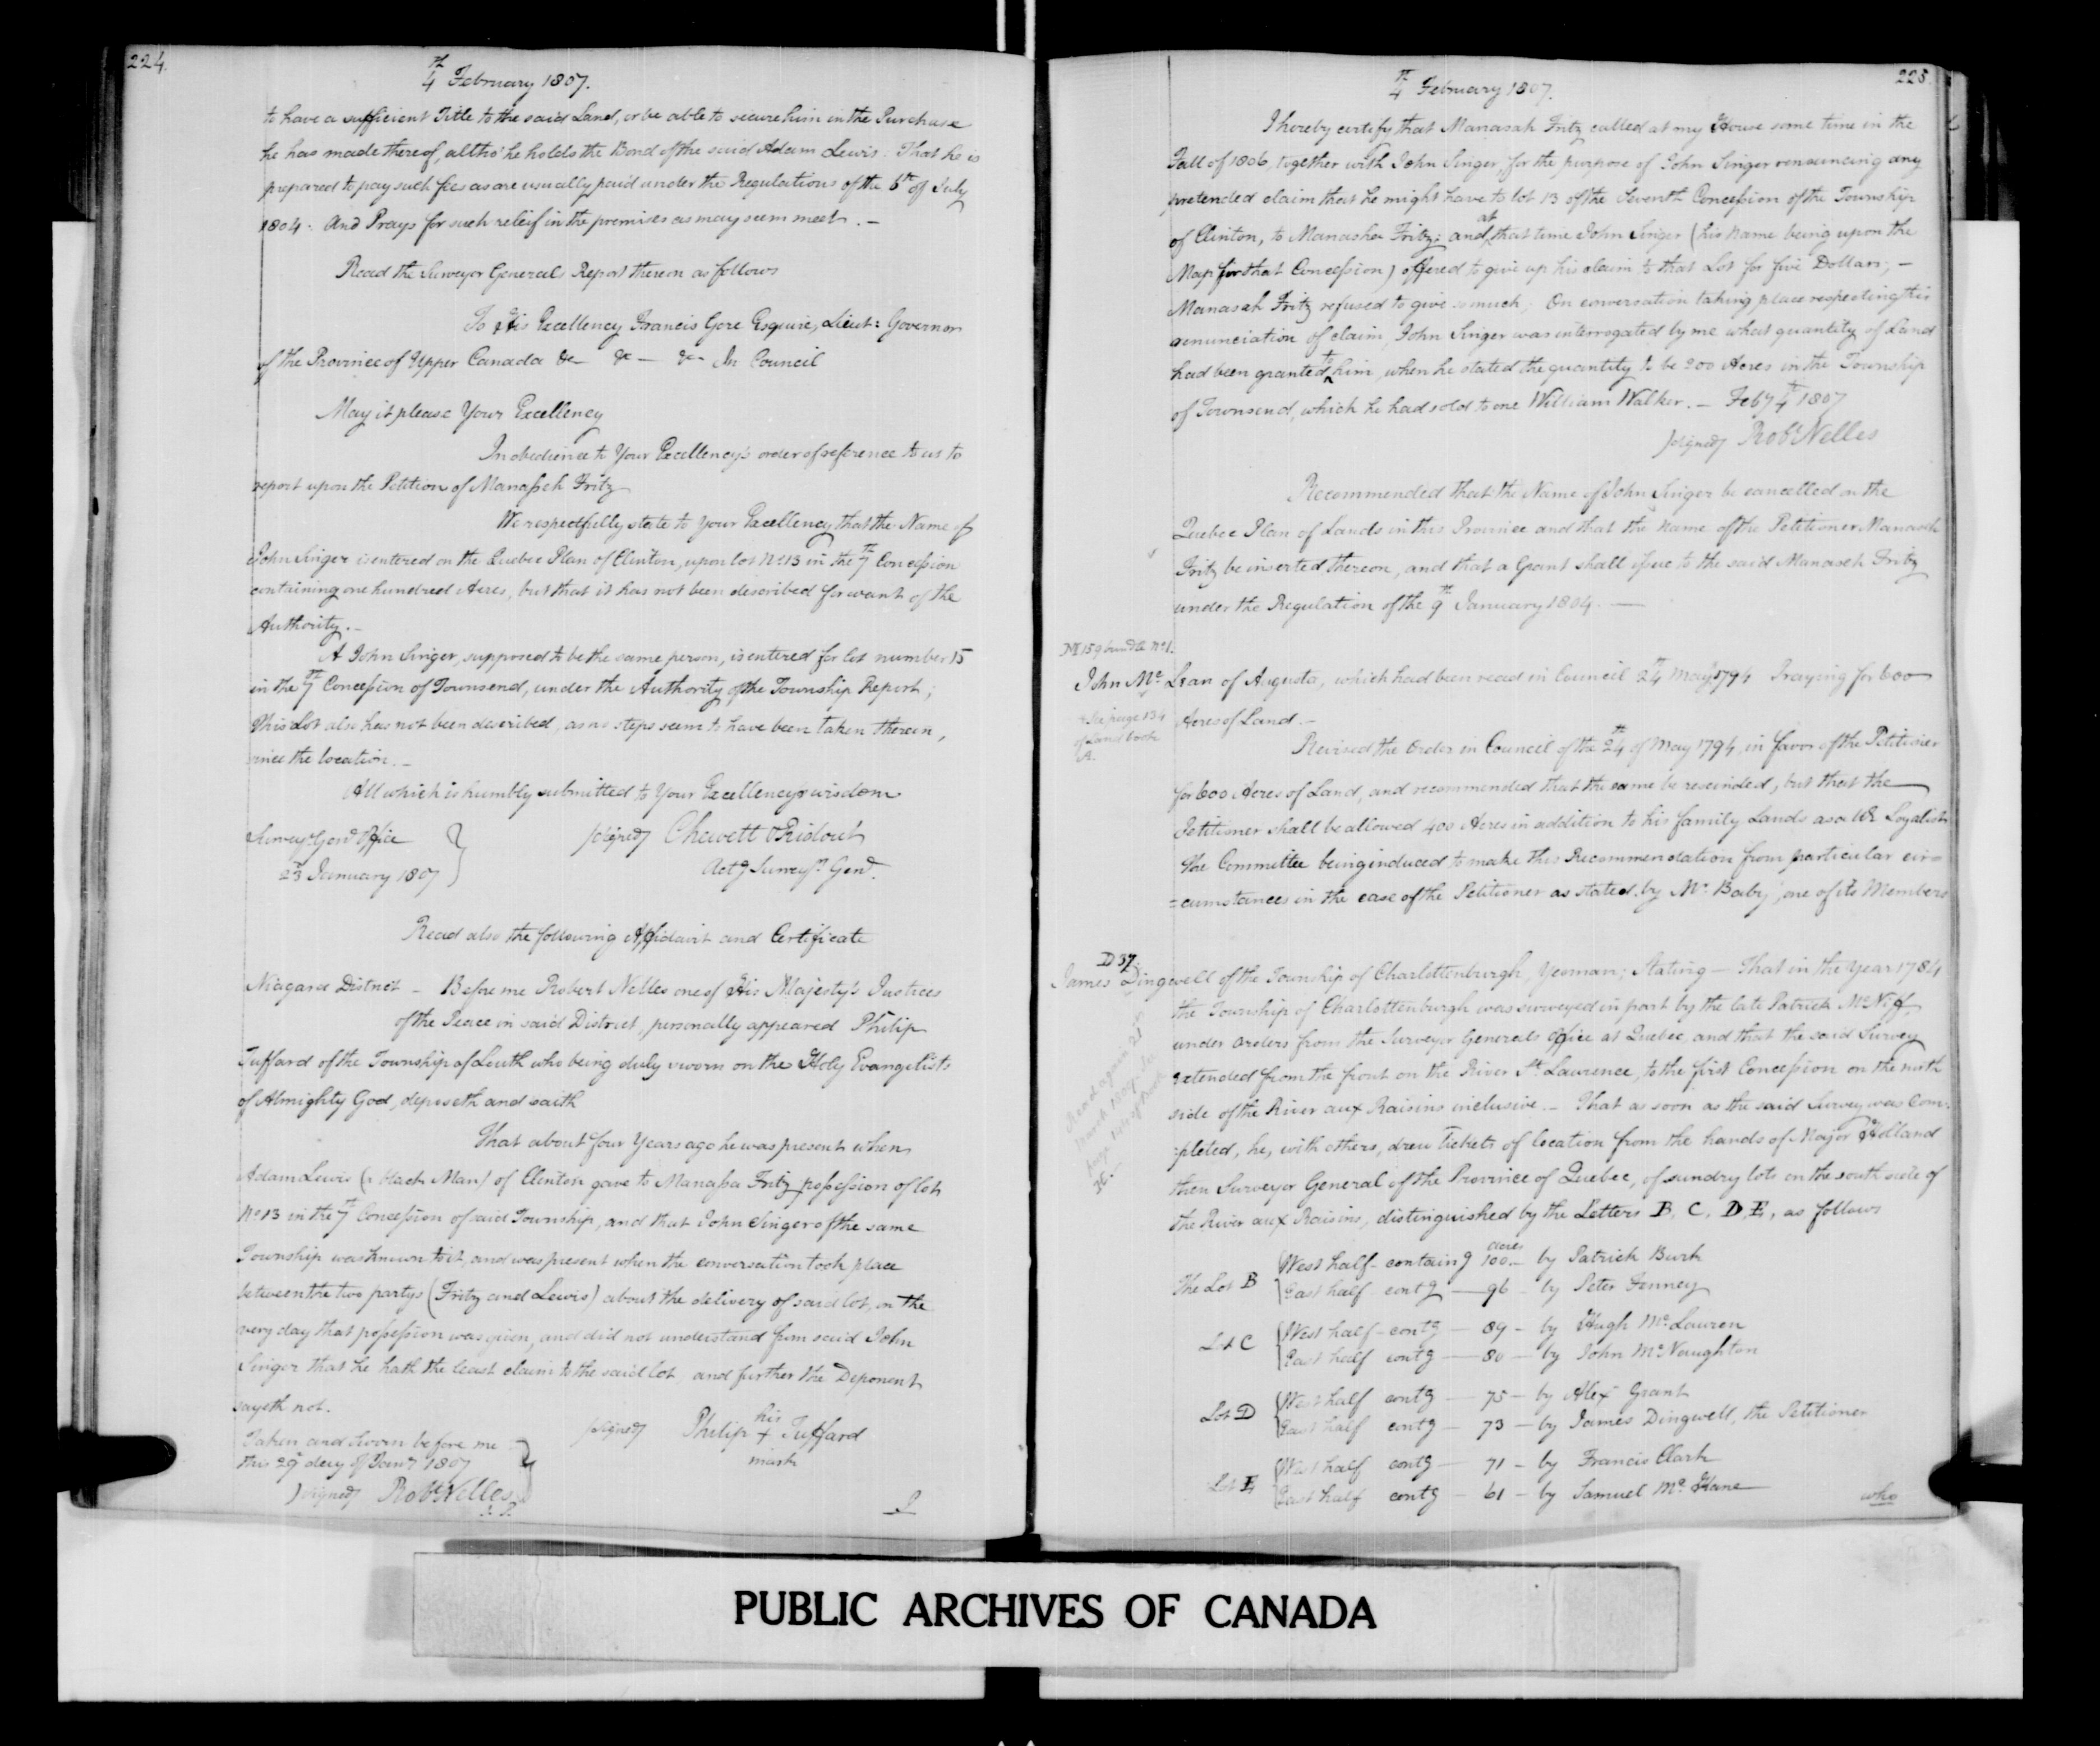 224.
4th February 1807.
to have a sufficient Title to the said Land, or be able to secure him in the Purchase
he has made thereof, altho' he holds the Bond of the said Adam Lewis. That he is
prepared to pay such fees as are usually paid under the Regulations of the 6th of July
1804. And Prays for such releif in the premises as may seem meet. —
Read the Surveyor Generals Report thereon as follows
To His Excellency Francis Gore Esquire, Lieut: Governor
of the Province of Upper Canada &c — &c — &c — In Council
May it please Your Excellency
In obedience to Your Excellency's order of reference to us to
report upon the Petition of Manasseh Fritz
We respectfully state to Your Excellency that the Name of
John Singer is entered on the Quebec Plan of Clinton, upon lot No 13 in the 7th Concession
containing one hundred Acres, but that it has not been described for want of the
Authority. —
A John Singer, supposed to be the same person, is entered for lot number 15
in the 7th Concession of Townsend, under the Authority of the Township Report;
This Lot also has not been described, as no steps seem to have been taken thereon,
since the location. —
All which is humbly submitted to Your Excellency's wisdom
Surveyr Genl Office
23d January 1807
signed Chewett & Ridout
Actg Surveyrs Genl.
Read also the following Affidavit and Certificate
Niagara District — Before me Robert Nelles one of His Majesty's Justices
of the Peace in said District, personally appeared Philip
Tuffard of the Township of Louth who being duly sworn on the Holy Evangelists
of Almighty God, deposeth and saith
That about four Years ago he was present when
Adam Lewis (a black Man) of Clinton gave to Manassa Fritz possession of lot
No 13 in the 7th Concession of said Township, and that John Singer of the same
Township was knewn to it, and was present when the conversation took place
between the two partys (Fritz and Lewis) about the delivery of said lot, on the
very day that possession was given, and did not understand from said John
Singer that he hath the least claim to the said lot, and further the Deponent
sayeth not.
Taken and Sworn before me
this 29 day of Jany 1807
signed Robt Nelles
J. P.
signed Philip his + mark Tuffard
I
225.
4th February 1807.
I hereby certify that Manasah Fritz called at my House some time in the
Fall of 1806, together with John Singer, for the purpose of John Singer renouncing any
pretended claim that he might have to lot 13 of the Seventh Concession of the Township
of Clinton, to Manasha Fritz; and at that time John Singer (his name being upon the
Map for that Concession) offered to give up his claim to that Lot for five Dollars; —
Manasah Fritz refused to give so much; On conversation taking place respecting this
renunciation of claim, John Singer was interrogated by me what quantity of Land
had been granted to him, when he stated the quantity to be 200 Acres in the Township
of Townsend, which he had sold to one William Walker. — Feby 4th 1807
signed Robt Nelles
Recommended that the Name of John Singer be cancelled on the
Quebec Plan of Lands in this Province and that the name of the Petitioner Manasah
Fritz be inserted thereon, and that a Grant shall issue to the said Manaseh Fritz
under the Regulation of the 9th January 1804. —
No 159 bundle No 1.
John Mc Lean of Augusta, which had been read in Council 24th May 1794 Praying for 600
Acres of Land. —
+ See page 134
of Land book
A.
Revised the Order in Council of the 24th of May 1794, in favor of the Petitioner
for 600 Acres of Land, and recommended that the same be rescinded, but that the
Petitioner shall be allowed 400 Acres in addition to his family Lands as a UE Loyalist
the Committee being induced to make this Recommendation from particular cir=
=cumstances in the case of the Petitioner as stated by Mr. Baby, one of its Members
D 37.
James Dingwell of the Township of Charlottenburgh, Yeoman; Stating — That in the Year 1784
the Township of Charlottenburgh was surveyed in part by the late Patrick McNiff,
under orders from the Surveyor Generals Office at Quebec, and that the said Survey
extended from the front on the River St. Lawrence, to the first Concession on the north
side of the River aux Raisins inclusive. — That as soon as the said Survey was Com-
pleted, he, with others, drew Tickets of location from the hands of Major Holland
then Surveyor General of the Province of Quebec, of sundry lots on the south side of
the River aux Raisins, distinguished by the Letters B, C, D, E, as follows
The Lot B West half — containg 100 acres — by Patrick Burk
East half contg — 96 — by Peter Fenney
Lot C West half — contg — 89 — by Hugh McLauren
East half contg — 80 — by John McNaughton
Lot D West half contg — 75 — by Alex Grant
East half contg — 73 — by James Dingwell, the Petitioner
Lot E West half contg — 71 — by Francis Clark
East half contg — 61 — by Samuel Mc Kane
who
PUBLIC ARCHIVES OF CANADA